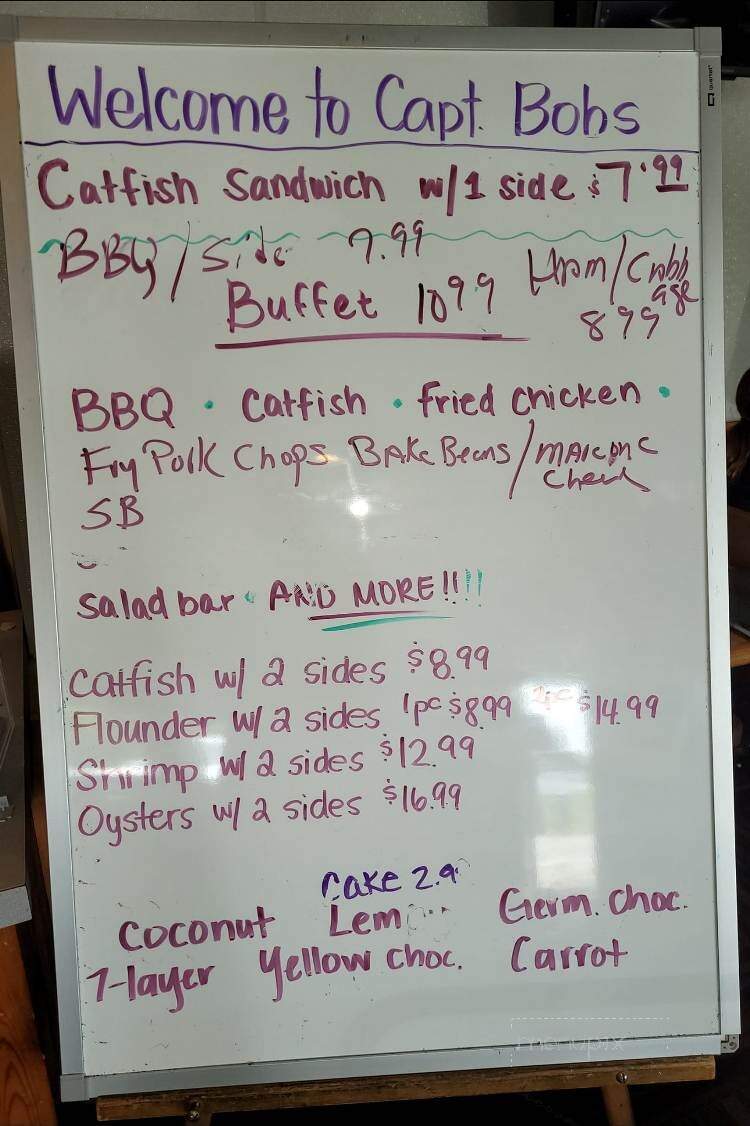 Welcome to Capt. Bobs
Catfish Sandwich w/1 side $7.99
BBQ/Side 7.99
Ham/Cabb
age
Buffet 10 99
8 99
BBQ • Catfish • Fried Chicken •
Fry Pork Chops BAke Beans/
SB
Salad bar • AND MORE!!!!
Catfish w/ 2 sides $8.99
Flounder w/ 2 sides 1pc $8.99 2pc $14.99
Shrimp w/ 2 sides $12.99
Oysters w/ 2 sides $16.99
Cake 2.9
Coconut Lem Germ. Choc.
7-layer Yellow choc. Carrot
quartet